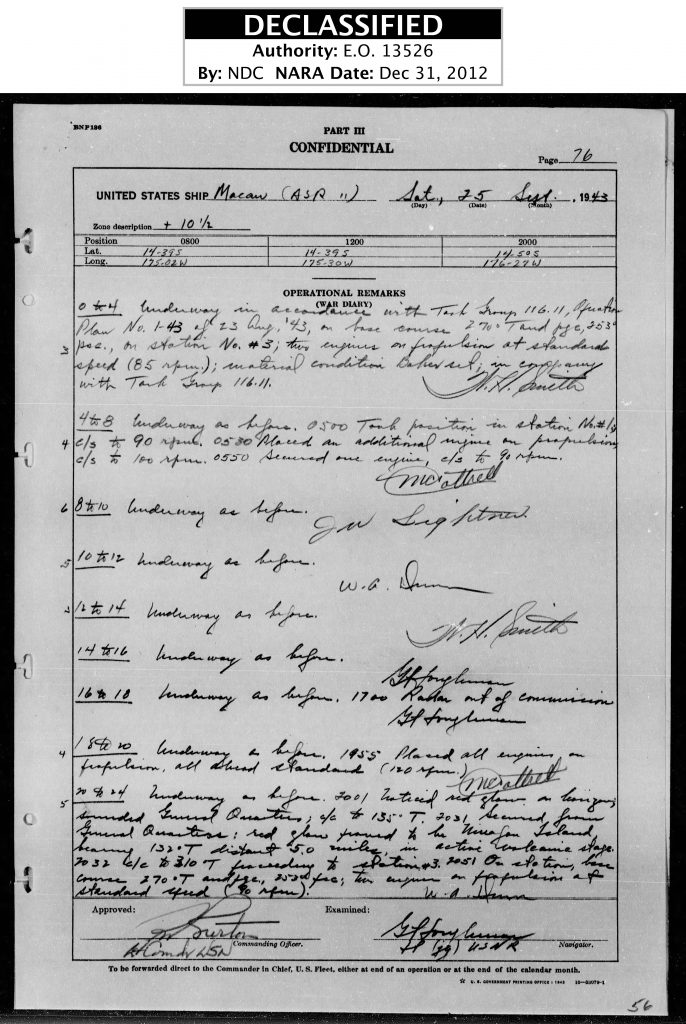 DECLASSIFIED
Authority: E.O. 13526
By: NDC NARA Date: Dec 31, 2012
BNP 136
PART III
CONFIDENTIAL
Page 76
UNITED STATES SHIP Macaw (ASR 11) Sat., 25 Sept., 1943
(Day) (Date) (Month)
Zone description + 10 1/2
Position 0800 1200 2000
Lat. 14-39S 14-39S 14-50S
Long. 175-02W 175-30W 176-27W
OPERATIONAL REMARKS
(WAR DIARY)
0 to 4 Underway in accordance with Task Group 116.11, Operation
Plan No. 1-43 of 23 Aug. '43, on base course 270° T and pgc, 253°
psc., on station No. #3; two engines on propulsion at standard
3
speed (85 rpm.); material condition Baker set, in company
with Task Group 116.11.
W. H. Smith
4 to 8 Underway as before. 0500 Took position in station No. #1,
4 c/s to 90 rpm. 0530 Placed an additional engine on propulsion,
c/s to 100 rpm. 0550 Secured one engine, c/s to 90 rpm.
6 8 to 10 Underway as before.
JW Lightner
5 10 to 12 Underway as before.
W. A. Dunn
12 to 14 Underway as before.
W. H. Smith
14 to 16 Underway as before.
16 to 18 Underway as before. 1700 Radar out of commission
4 18 to 20 Underway as before. 1955 Placed all engines on
propulsion, all ahead standard (120 rpm.)
20 to 24 Underway as before. 2001 Noticed red glow on horizon,
5 sounded General Quarters; c/c to 135° T. 2031 Secured from
General Quarters; red glow proved to be Island,
bearing 132° T distant 5.0 miles, in active volcanic stage.
2032 c/c to 310 T proceeding to station #3. 2051 On station, base
course 270° T and pgc, 253° psc; two engines on propulsion at
standard speed (90 rpm).
W. A. Dunn
Approved: Examined:
Lt Comdr USN Commanding Officer. Lt (jg) USNR Navigator.
To be forwarded direct to the Commander in Chief, U. S. Fleet, either at end of an operation or at the end of the calendar month.
☆ U. S. GOVERNMENT PRINTING OFFICE : 1943
56